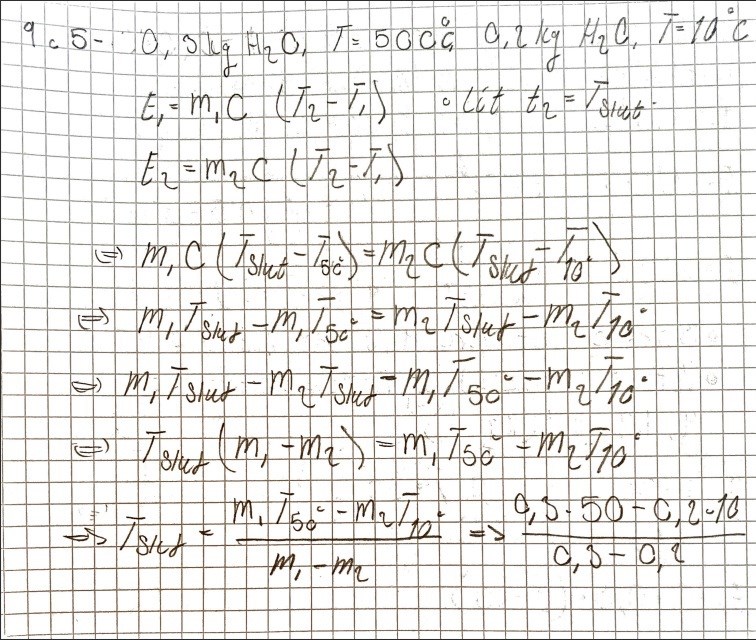 9.5- 0,3 kg H2O, T=50°C, 0,2 kg H2O, T=10°C
E₁=m₁C (T₂-T₁) • Låt t₂ = Tslut.
E₂=m₂C (T₂-T₁)
=> m₁C (Tslut - T50°)=m₂C (Tslut - T10°)
=> m₁Tslut - m₁T50° = m₂Tslut - m₂T10°
=> m₁Tslut - m₂Tslut = m₁T50° - m₂T10°
=> Tslut (m₁-m₂) = m₁T50° - m₂T10°
=> Tslut = (m₁T50° - m₂T10°)/(m₁-m₂) => (0,3·50-0,2·10)/(0,3-0,2)